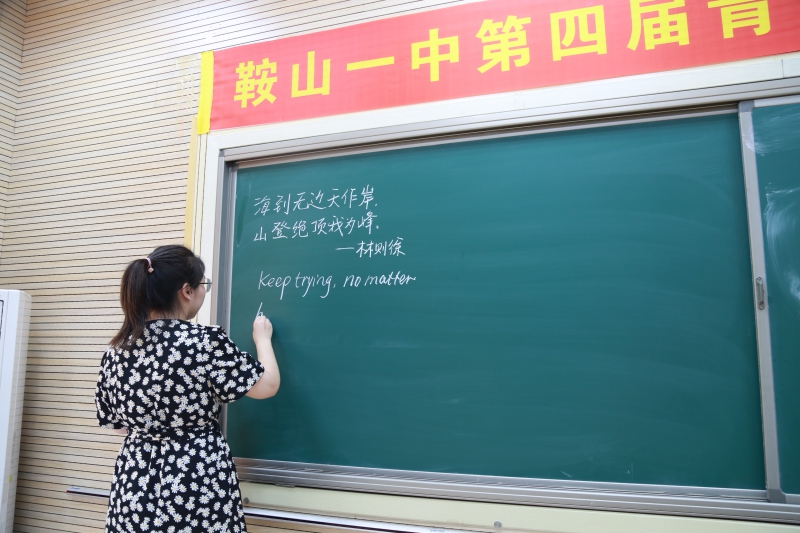 鞍山一中第四届青
海到无边天作岸.
山登绝顶我为峰.
—林则徐
Keep trying, no matter
h